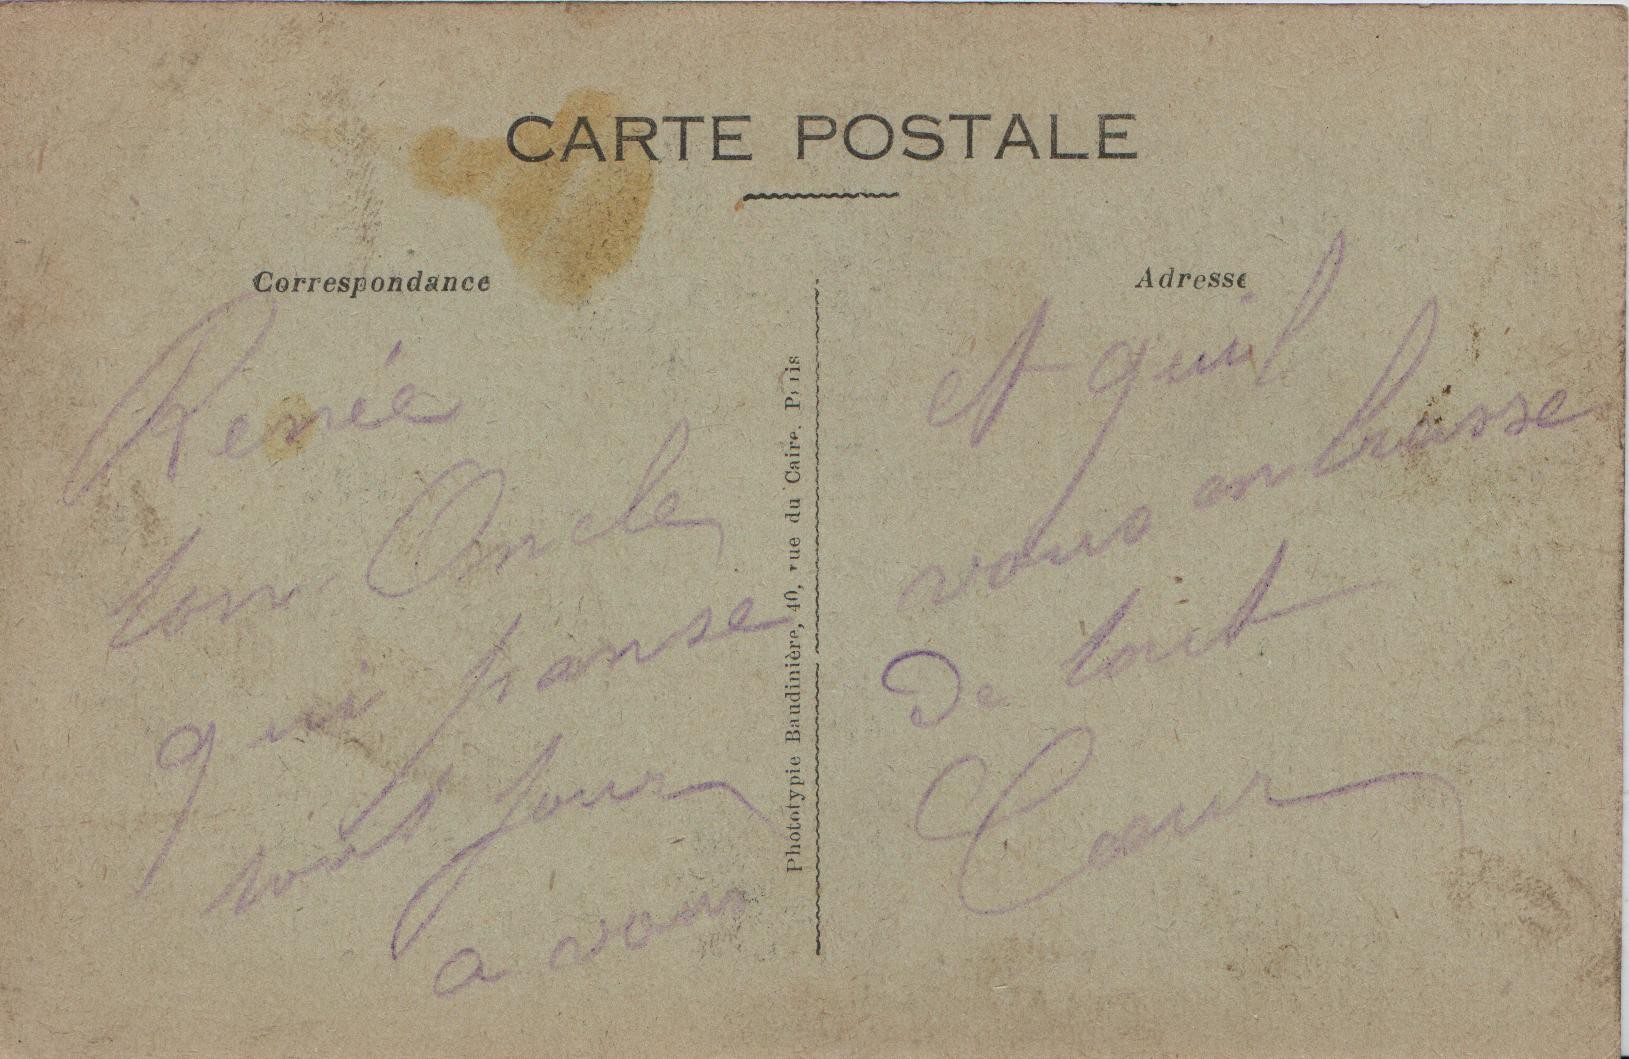 CARTE POSTALE
Correspondance
Renée
ton Oncle
qui panse
tout jour
a vous
Phototypie Baudinière, 40, rue du Caire. Paris
Adresse
et quil
vous anbrasse
De tout
Cœur